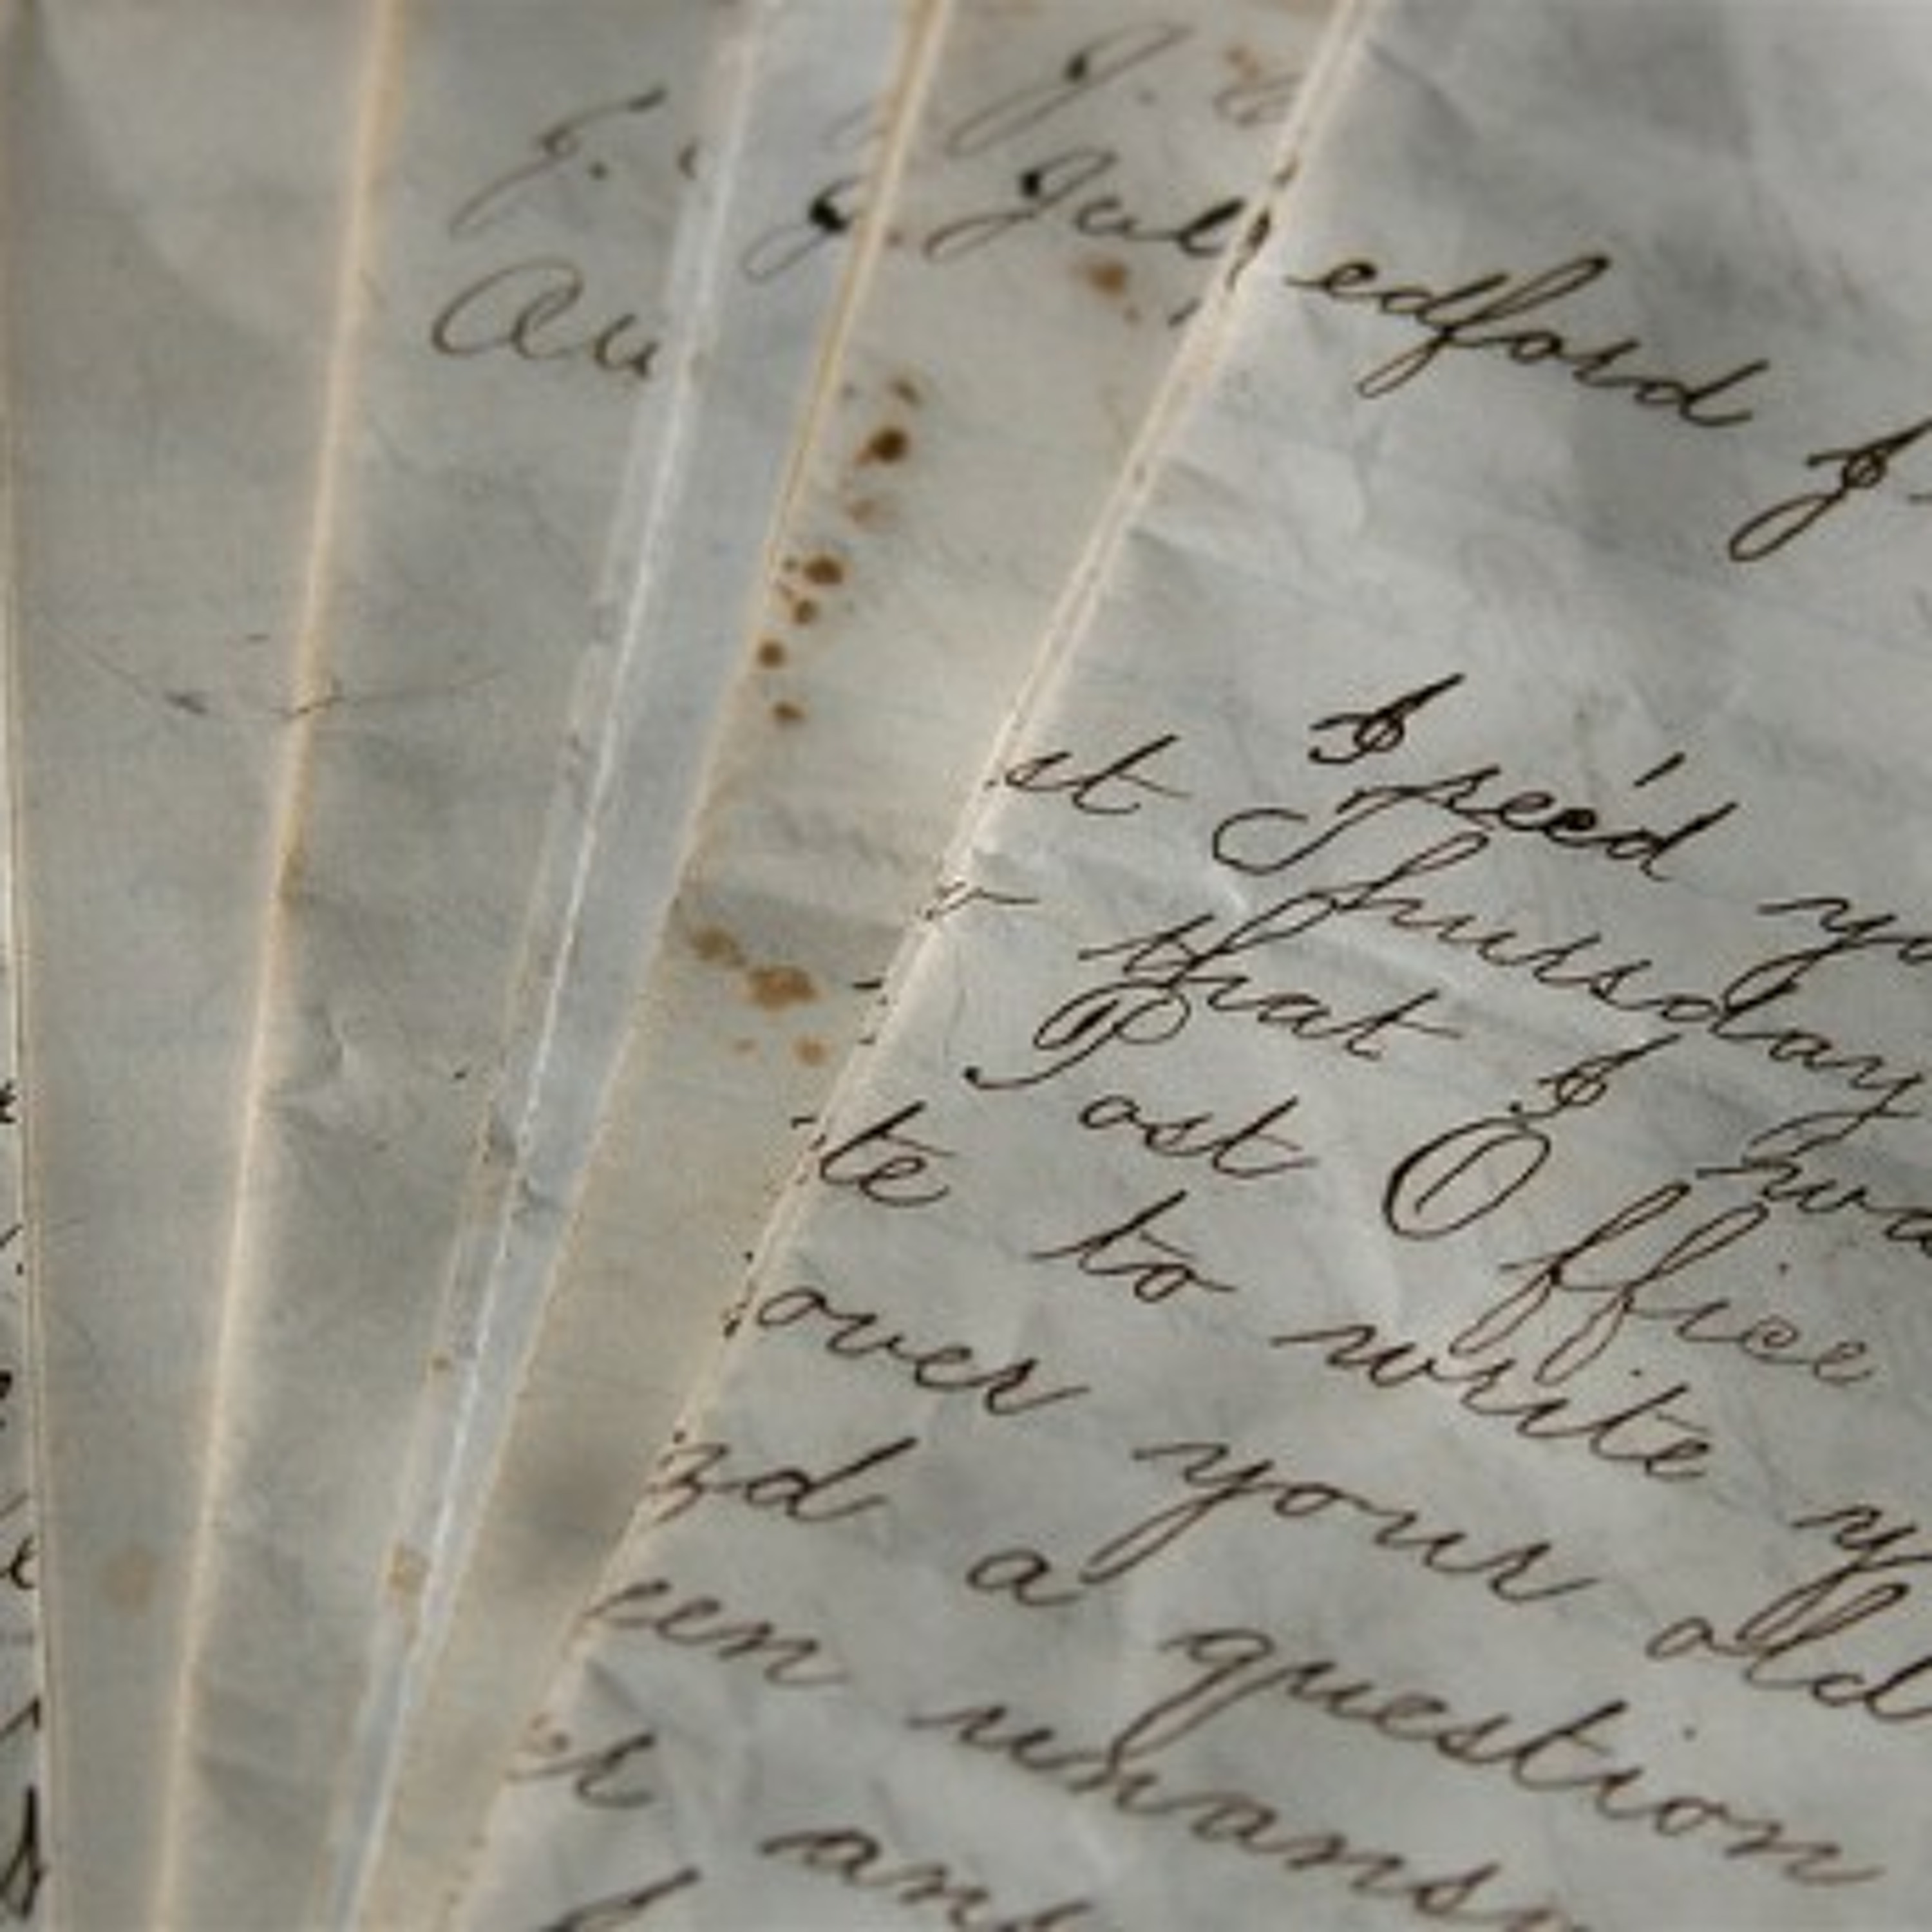 Au
July
edford I.
I rec'd yo
st Thursday
that I wa
Post Office
te to write y
over your old
nd a question
een unansw
er ans